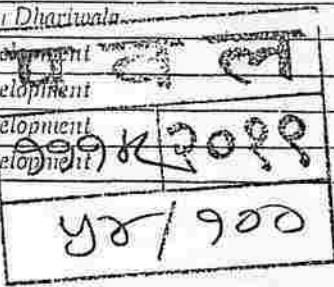 Dhariwala
elopment
प व ल
elopment
elopment
elopment
२०११
५४/१००